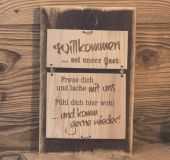 Willkommen
... sei unser Gast
Freue dich
und lache mit uns
Fühl dich hier wohl
... und komm
gerne wieder!